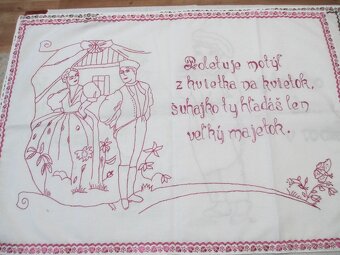 Poletuje motýľ
z kvietka na kvietok,
šuhajko ty hľadáš len
veľký majetok.